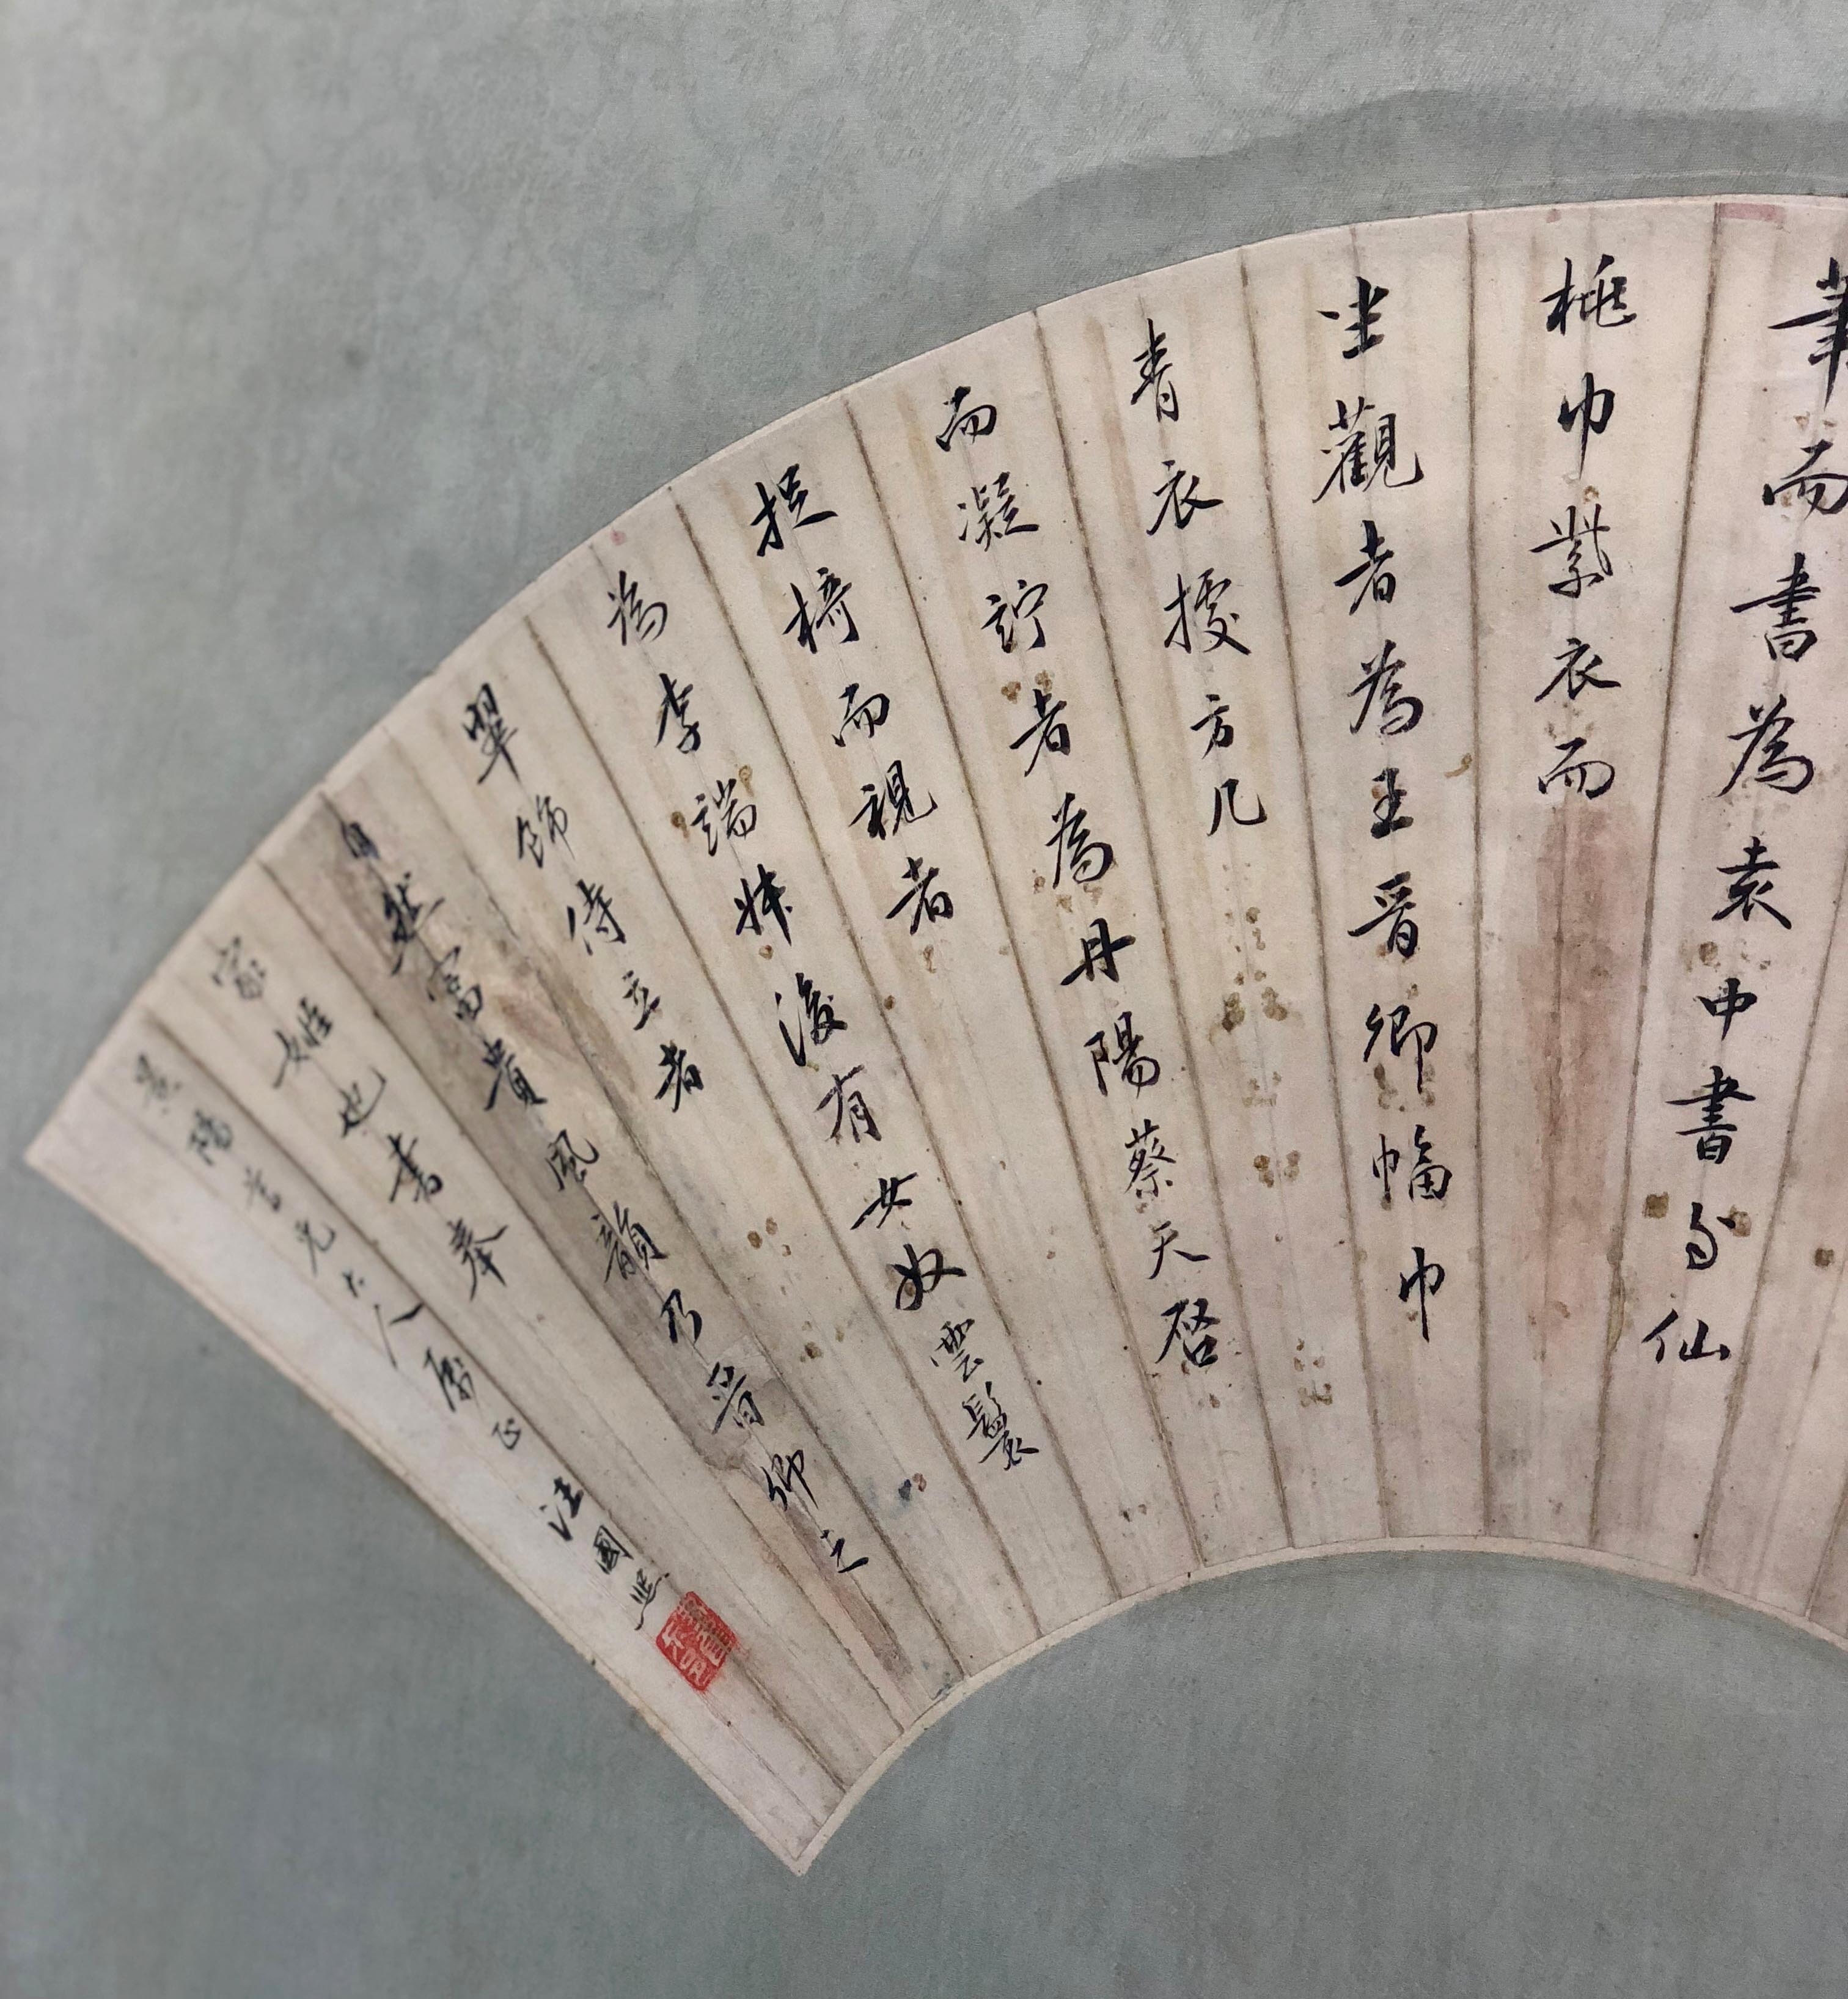 筆而書為袁中書身仙
桃巾紫衣而
坐觀者為王晉卿幅巾
青衣據方几
而凝竚者為丹陽蔡天啓
捉椅而視者
為李端牀後有女奴雲鬟
翠飾侍立者
自然富貴風韻乃晉卿之
家姬也書奉
陽言兄大人屬正 汪國